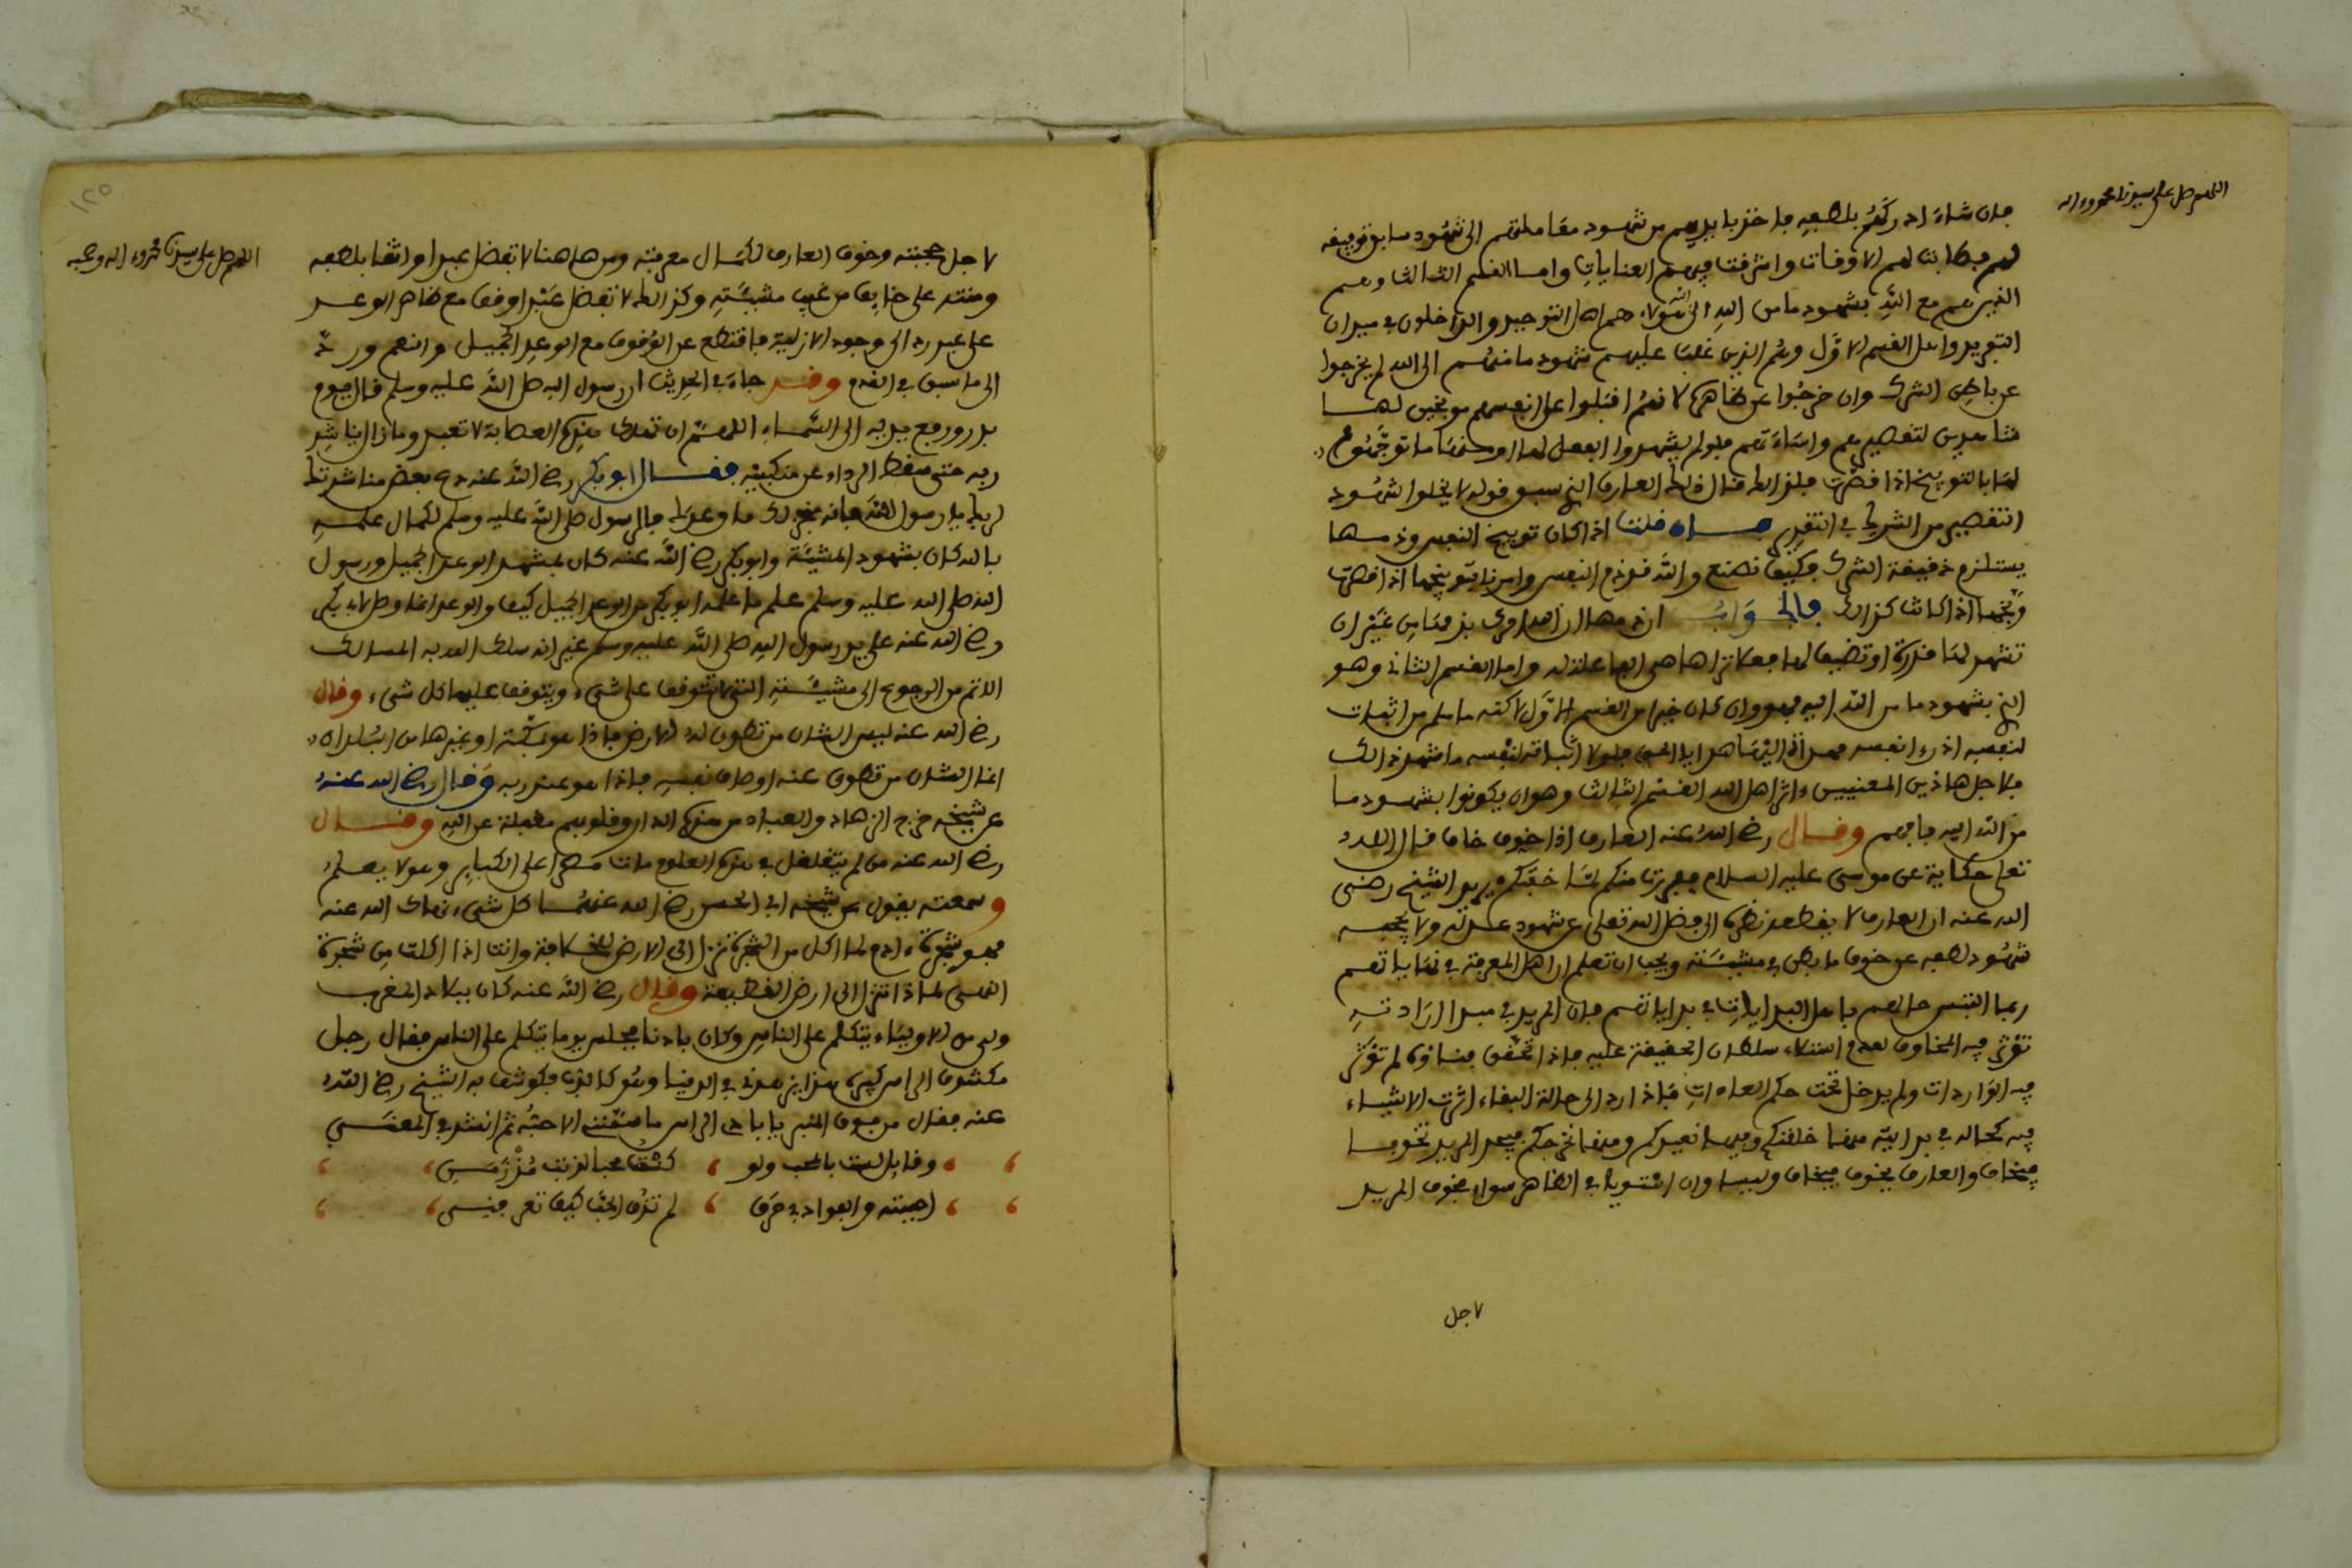 اللهم صل على سيدنا محمد وءاله
فان شاء اد ركهم بلطفه فاخذ بايديهم من شهود معاملتهم الى شهود سابق توفيقه
لهم فطابت لهم الاوقات واشرقت فيهم العنايات واما القسم الثالث وهم
الذين هم مع الله بشهود ما من الله الى الله هؤلاء هم اهل التوحيد والداخلون في ميدان
التفريد واهل القسم الاول وهم الذين غلب عليهم شهود ما منهم الى الله لم يخرجوا
عن باطن الشرك وان خرجوا عن ظاهره لانهم اقبلوا على انفسهم موبخين لها
شاهدين لتقصيرهم واساءتهم فلو لم يشهدوا الفعل لها او منها ما توجهوا
لها بالتوبيخ اذا قصرت فلذلك قال ذلك العارف الذي سبق قوله لا يخلوا شهود
التقصير من الشرك في التقدير فان قلت اذا كان توبيخ النفس وذمها
يستلزم دقيقة الشرك فكيف نصنع والله قد ذم النفس وامرنا بتوبيخها اذا قصرت
وبخها اذا كانت كذلك فالجواب ان ذمها لان الله امرك بذمها من غير ان
تشهد لها قدرة او تضيف لها فعلا تراها هي الفاعلة له واما القسم الثاني وهو
الذي بشهود ما من الله اليه فهو وان كان خيرا من القسم الاول لاكنه ما سلم من اثبات
لنفسه اذ رءا نفسه مهداة اليها هدايا الحق فلولا اثباته لنفسه ما شهد ذالك
فلاجل هاذين المعنيين ءاثر اهل الله القسم الثالث وهو ان يكونوا بشهود ما
من الله اليه فافهم وقال رضي الله عنه العارف اذا خوف خاف قال الله
تعلى حكاية عن موسى عليه السلام ففررت منكم لما خفتكم يريد الشيخ رضي
الله عنه ان العارف لا يقطعه نظره الى فضل الله تعلى عن شهود عدله ولا يحجبه
شهود لطفه عن خوف ما بطن في مشيئته ويجب ان تعلم ان اهل المعرفة في نهاياتهم
ربما التبس حالهم باهل البدايات في بداياتهم فان المريد في مبدا ارادته
تؤثر فيه المخاوف لعدم استيلاء سلطان الحقيقة عليه فاذا تحقق فناؤه لم تؤثر
فيه الواردات ولم يدخل تحت حكم العادات فاذا رد الى حالة البقاء اثرت الاشياء
فيه كحاله في بدايته منها خلقنكم وفيها نعيدكم ومنها نخرجكم فيعد المريد نخوفا
فيخاف والعارف يخوف فيخاف وليسا وان استويا في الظاهر سواء فخوف المريد
لاجل
١٢٥
اللهم صل على سيدنا محمد وءاله وصحبه
لاجل حجبته وخوف العارف لكمال معرفته ومن هاهنا لا تفضل عبدا واثقا بلطفه
ومنته على خائف من غيب مشيئته وكذلك لا تفضل عبدا وقف مع ظاهر الوعد
على عبد رد الى وجود الازلية فانقطع عن الوقوف مع الوعد الجميل وانعم ورد
الى ما سبق في القدم وقد جاء في الحديث ان رسول الله صل الله عليه وسلم قال يوم
بدر ورفع يديه الى السماء اللهم ان تهلك هذه العصابة لا تعبد وما زال يناشد
ربه حتى سقط الرداء عن منكبيه فقال ابو بكر رضي الله عنه دع بعض مناشدتك
لربك يا رسول الله فانه منجز لك ما وعدك فالرسول صلى الله عليه وسلم لكمال علمه
بالله كان بشهود المشيئة وابو بكر رضي الله عنه كان بمشهد الوعد الجميل ورسول
الله صلى الله عليه وسلم علم ما علمه ابو بكر من الوعد الجميل كيف والوعد انما وصل لابي بكر
رضي الله عنه على يد رسول الله صلى الله عليه وسلم غير انه سلك الله به المسالك
الاتم من الرجوع الى مشيئته التي لا تتوقف على شيء ويتوقف عليها كل شيء وقال
رضي الله عنه ليس الشان من تطوى له الارض فاذا هو بمكة او غيرها من البلدان
انما الشان من تطوى عنه اوصاف نفسه فاذا هو عند ربه وقال رضي الله عنه
عن شيخه خرج الزهاد والعباد من هذه الدار وقلوبهم مقفلة عن الله وقال
رضي الله عنه من لم يتغلغل في هذه العلوم مات مصرا على الكبائر وهو لا يعلم
وسمعته يقول عن شيخه ابي الحسن رضي الله عنهما كل شيء نهاك الله عنه
فهو شجرة ءادم لما اكل من الشجرة نزل الى الارض للخلافة وانت اذا اكلت من شجرة
النهي لماذا تنزل الى ارض القطيعة وقال رضي الله عنه كان ببلاد المغرب
ولي من الاولياء يتكلم على الناس وكان بادنا فجلس يوما يتكلم على الناس فقال رجل
مكشوف الراس كبير هذا يزهدنا في الدنيا وهو كالدب فكوشف به الشيخ رضي الله
عنه فقال من فوق المنبر يا بادي الراس ما سمنني الا حبه ثم انشد في المعنى
وقائل لست بالمحب ولو كنت محبا لذبت مذ زمن
اجبته والفؤاد في حرق لم تذق الحب كيف تعرفني